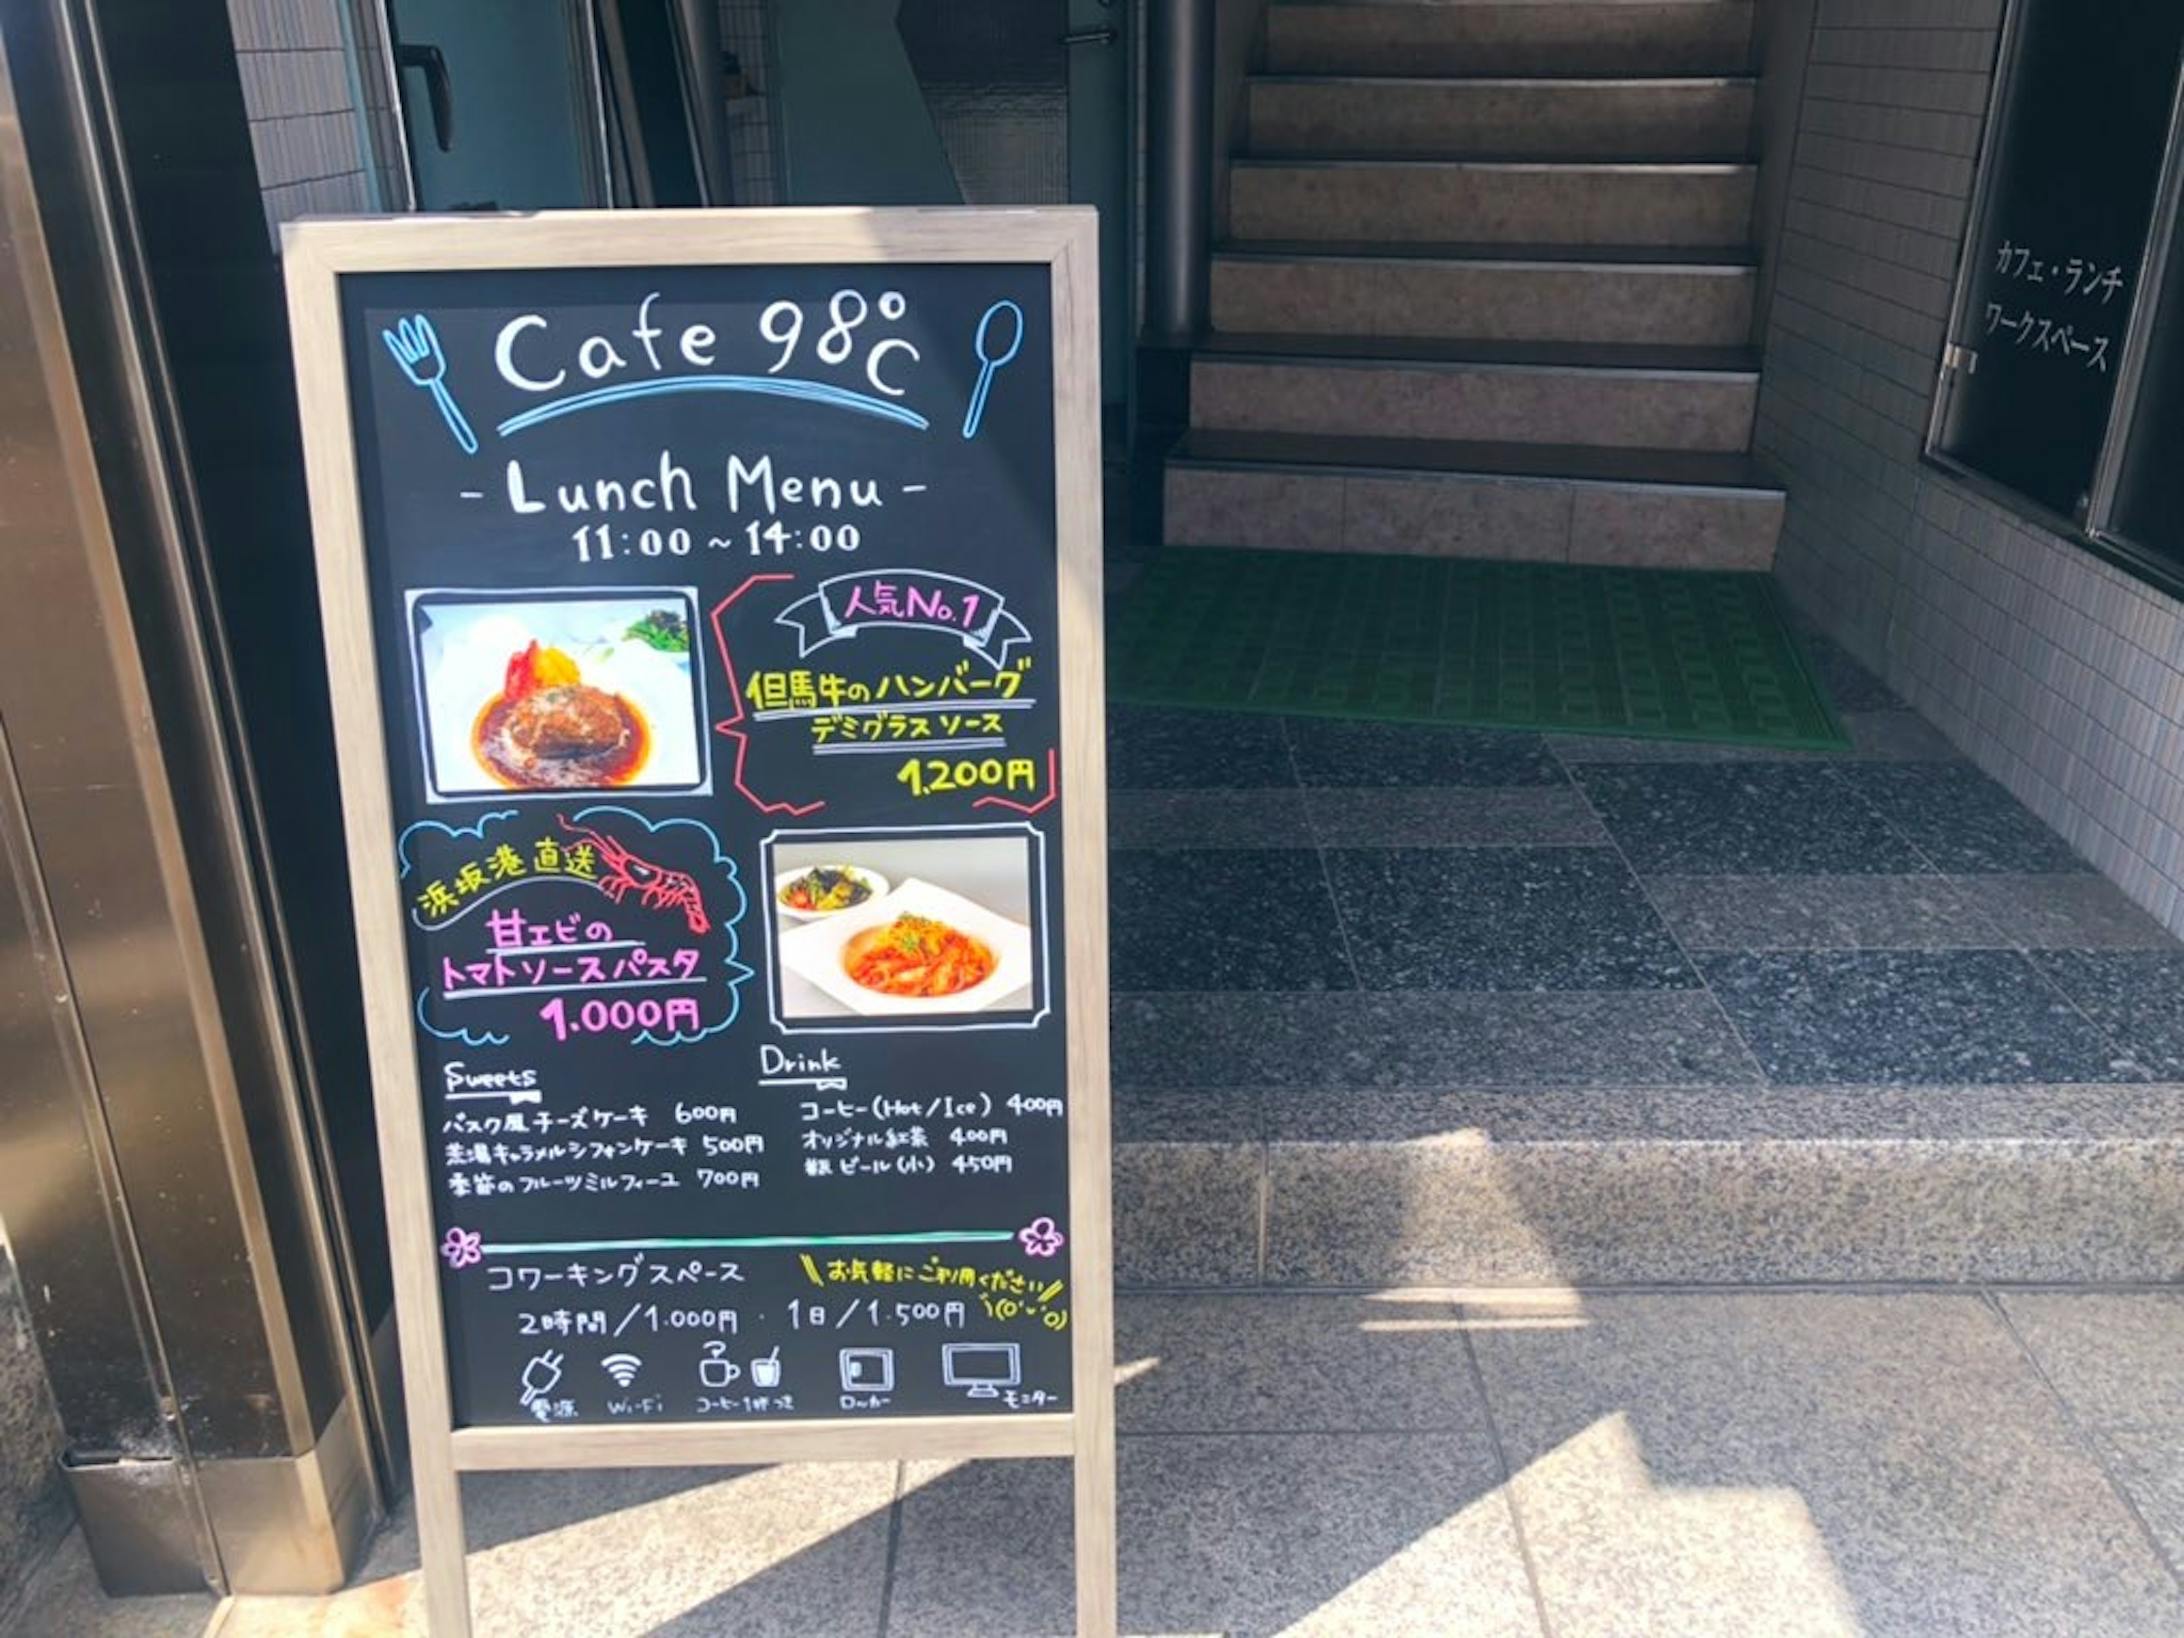 Cafe 98℃
- Lunch Menu -
11:00~14:00
人気No.1
但馬牛のハンバーグ
デミグラスソース
1,200円
浜坂港直送
甘エビの
トマトソースパスタ
1.000円
Sweets
バスク風チーズケーキ 600円
キャラメルシフォンケーキ 500円
季節のフルーツミルフィーユ 700円
Drink
コーヒー(Hot/Ice) 400円
オリジナル紅茶 400円
瓶ビール(小) 450円
コワーキングスペース
\\お気軽にご利用ください//
2時間/1.000円・1日/1.500円
電源
Wi-Fi
コーヒー1杯つき
ロッカー
モニター
カフェ・ランチ
ワークスペース